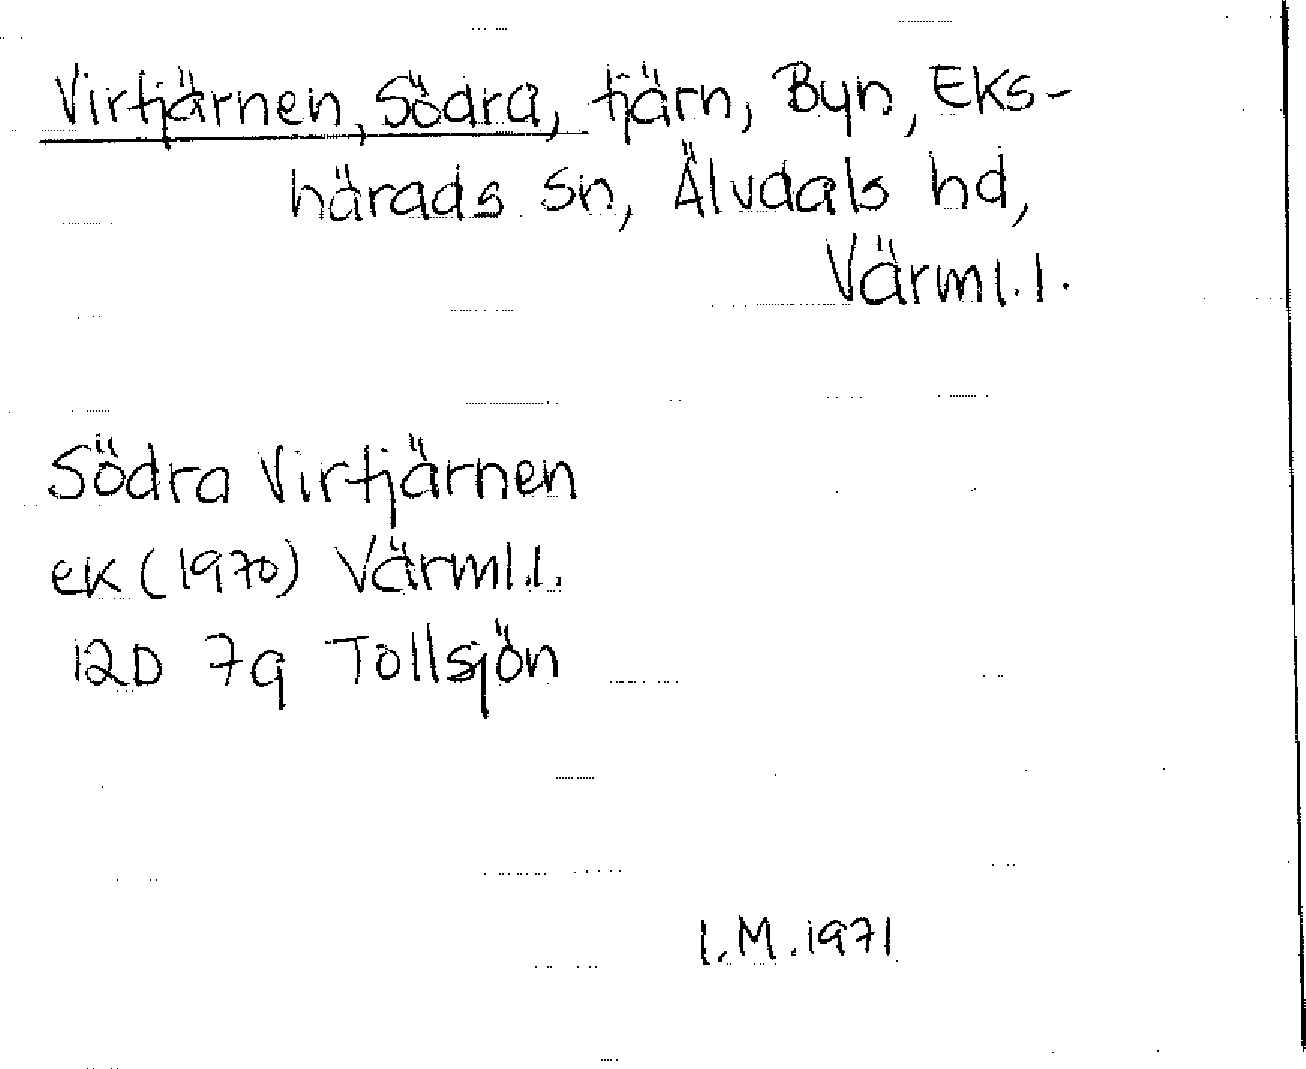 Virtjärnen, Södra, tjärn, Byn, Eks-
härads sn, Älvdals hd,
Värml. l.
Södra Virtjärnen
ek (1970) Värml. l.
12D 7g Tollsjön
I. M. 1971